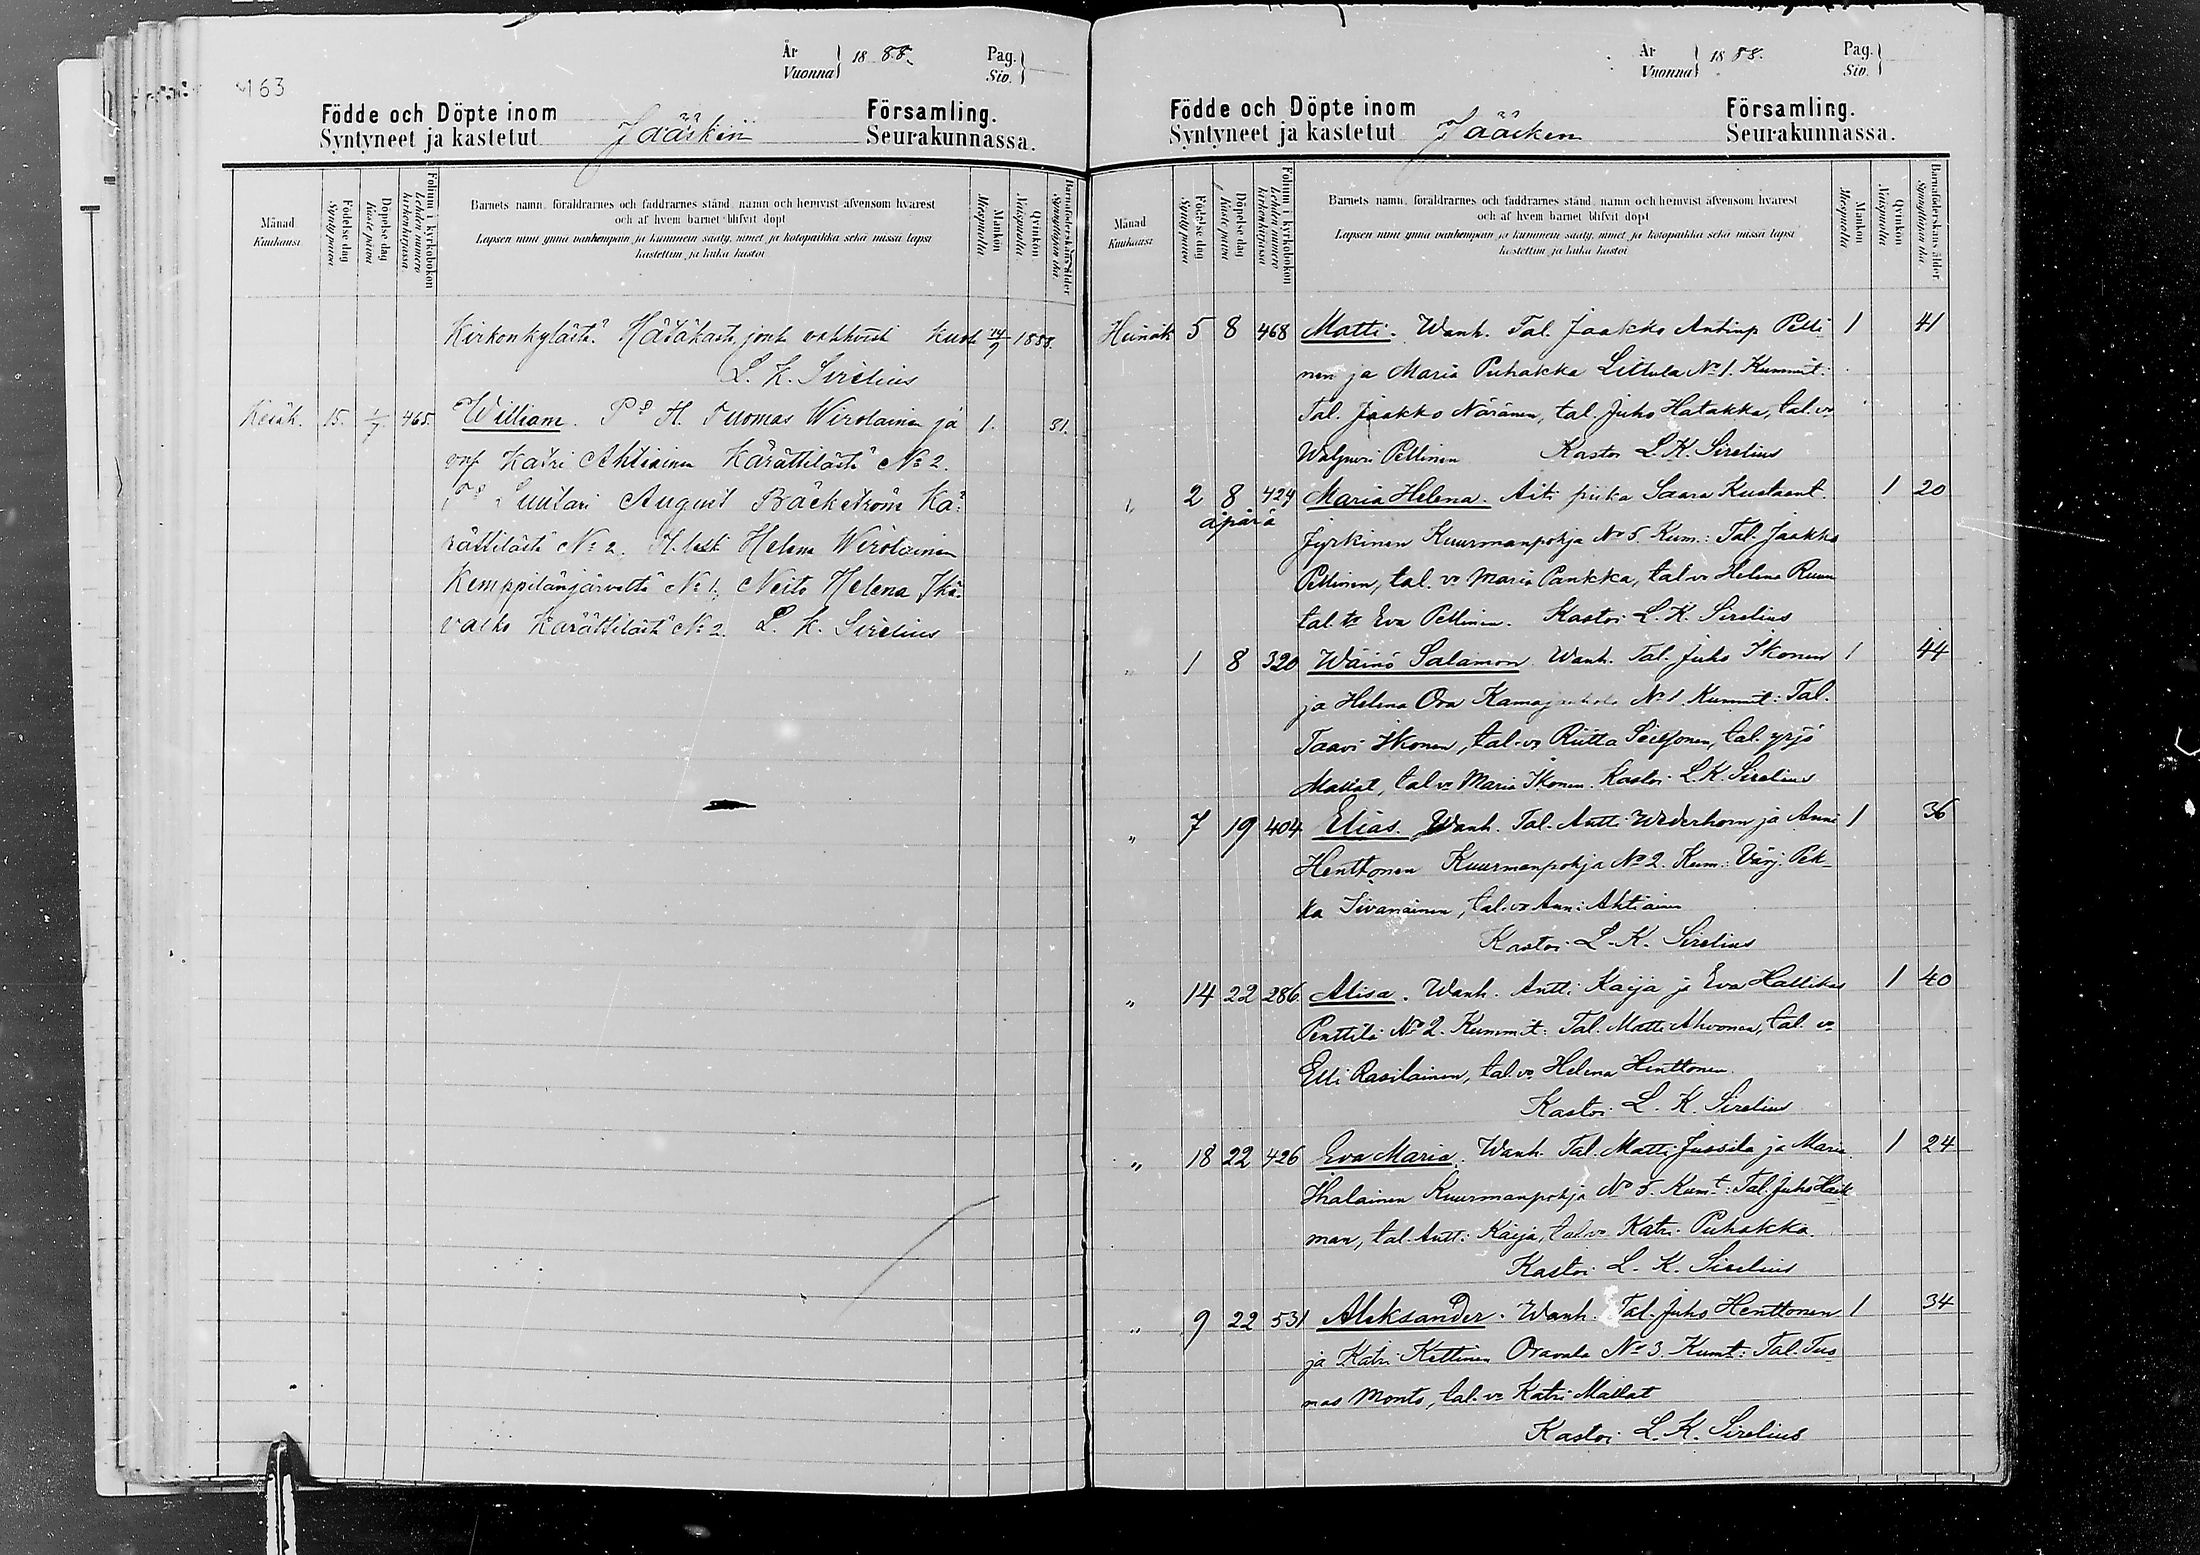 163
År
Vuonna } 1888.
Pag.
Siv. }
Födde och Döpte inom
Syntyneet ja kastetut Jääskin
Församling.
Seurakunnassa.
Månad
Kuukausi
Födelse dag
Synty päivä
Döpelse dag
Kaste päivä
Folium i kyrkoboken
Lehden numero kirkonkirjassa
Barnets namn, föräldrarnes och faddrarnes stånd, namn och hemvist äfvensom hvarest
och af hvem barnet blifvit döpt
Lapsen nimi ynnä vanhempain ja kummein sääty, nimet ja kotopaikka sekä missä lapsi
kastettiin ja kuka kastoi
Mankön
Miespuolta
Qvinkön
Naispuolta
Barnaföderskans ålder
Synnyttäjän ikä
Kirkonkylästä. Hätäkaste, jonk vahvisti 1888.
L. K. Sirelius
Kesäk. 15. 1/7 465. William. Tuomas Wirolainen ja 1. 31.
Katri Ahtiainen Kärättilästä No 2.
Suutari August Bäckström Kä-
rättilästä No 2, Helena Wirolainen
Kemppilänjärveltä No 1, Neito Helena Ikä-
valko Kärättilästä No 2. L. K. Sirelius
År
Vuonna } 1888.
Pag.
Siv. }
Födde och Döpte inom
Syntyneet ja kastetut Jääsken
Församling.
Seurakunnassa.
Månad
Kuukausi
Födelse dag
Synty päivä
Döpelse dag
Kaste päivä
Folium i kyrkoboken
Lehden numero kirkonkirjassa
Barnets namn, föräldrarnes och faddrarnes stånd, namn och hemvist äfvensom hvarest
och af hvem barnet blifvit döpt
Lapsen nimi ynnä vanhempain ja kummein sääty, nimet ja kotopaikka sekä missä lapsi
kastettiin ja kuka kastoi
Mankön
Miespuolta
Qvinkön
Naispuolta
Barnaföderskans ålder
Synnyttäjän ikä
Heinäk 5 8 468 Matti. Wanh. Tal. Jaakko Antinp Pelli- 1 41
nen ja Maria Puhakka Littula No 1. Kummit:
Tal. Jaakko Näränen, tal. Juho Hatakka, tal. vo
Walpuri Pellinen Kastoi L. K. Sirelius
" 2 8 424 Maria Helena. Äiti piika Saara Kustaant. 1 20
äpärä
Jyrkinen Kuurmanpohja No 5. Kum.: Tal. Jaakko
Pellinen, tal. vo Maria Pankka, tal. vo Helena Ruun
tal. tr Eva Pellinen. Kastoi L. K. Sirelius
" 1 8 320 Wäinö Salamon. Wanh. Tal. Juho Ikonen 1 44
ja Helena Ora No 1 Kummit: Tal.
Taavi Ikonen, tal. vo Riitta Seilonen, tal. Yrjö
Mallat, tal. vo Maria Ikonen. Kastoi L. K. Sirelius
" 7 19 404 Elias. Wanh. Tal. Antti Wederhorn ja Anni 1 36
Henttonen Kuurmanpohja No 2. Kum: Värj. Pek-
ka Sivanainen, tal. vo Anni Ahtiainen
Kastoi L. K. Sirelius
" 14 22 286 Alisa. Wanh. Antti Kaija ja Eva Hallikas 1 40
Penttilä No 2. Kummit: Tal. Matti Ahvonen, tal. vo
Elli Rasilainen, tal. vo Helena Henttonen.
Kastoi L. K. Sirelius
" 18 22 426 Eva Maria. Wanh. Tal. Matti Jussila ja Maria 1 24
Ihalainen Kuurmanpohja No 5. Kumt: Tal. Juho Hack-
man, tal. Antti Kaija, tal. vo Katri Puhakka.
Kastoi L. K. Sirelius
" 9 22 531 Aleksander. Wanh. Tal. Juho Henttonen 1 34
ja Katri Kettinen Oravala No 3. Kumt: Tal. Tuo
mas Monto, tal. vo Katri Mallat
Kastoi L. K. Sirelius